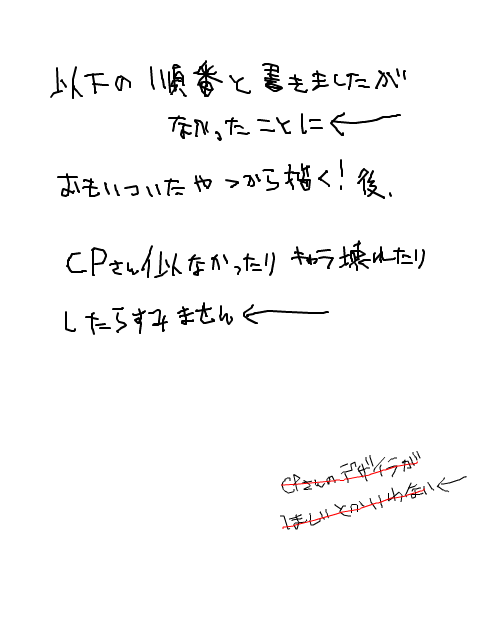 以下の順番と書きましたが
なかったことに←
おもいついたやつから描く!後、
CPさん似なかったりキャラ壊れたり
したらすみません←
CPさんのデザイラが
ほしいとかいわない←